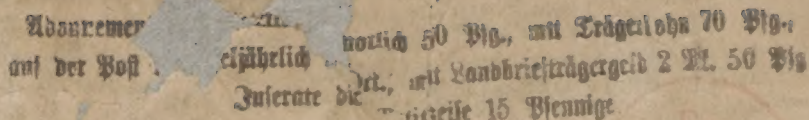 Abonnemen monatlich 50 Pfg., mit Trägerlohn 70 Pfg.,
auf der Post eljährlich Mk., mit Landbriefträgergeld 2 Mk. 50 Pfg
Inserate die Petitzeile 15 Pfennige